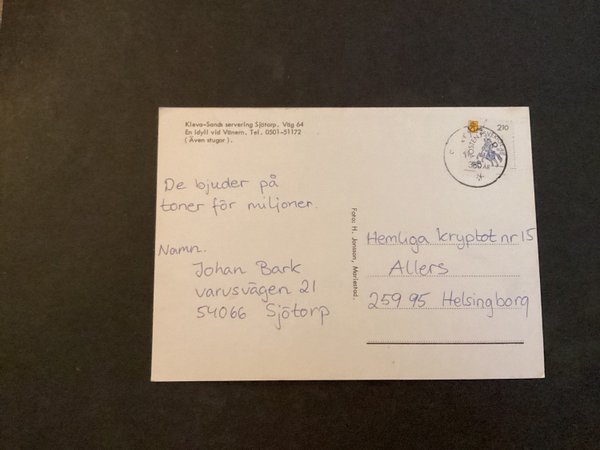 Kleva-Sands servering Sjötorp. Väg 64
En idyll vid Vänern. Tel. 0501-51172
( Även stugor ).
210
De bjuder på
toner för miljoner.
Namn.
Johan Bark
varusvägen 21
54066 Sjötorp
Foto: H. Jonsson, Mariestad.
Hemliga kryptot nr 15
Allers
259 95 Helsingborg